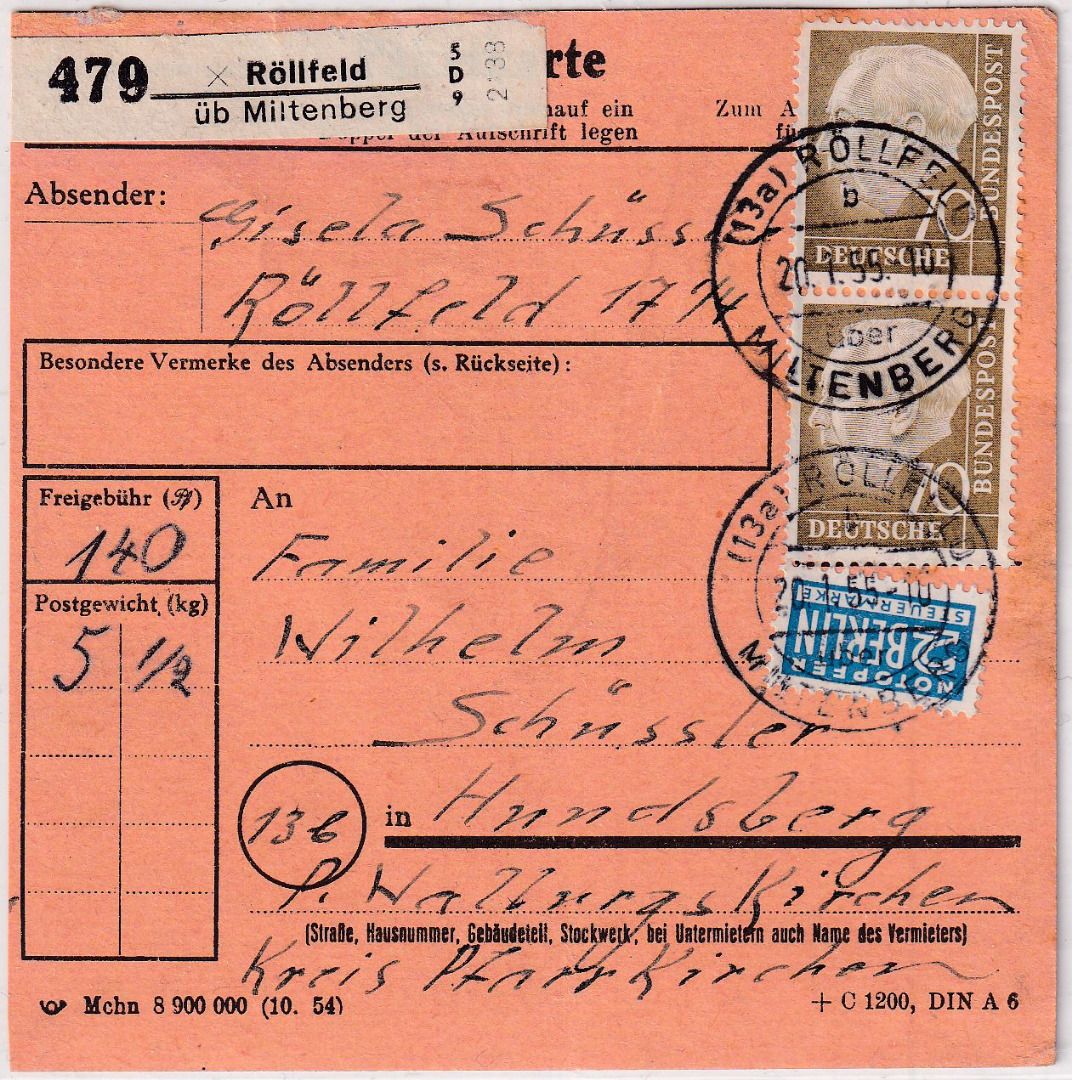 479 × Röllfeld
üb Miltenberg
5
D
9
2138
rte
nauf ein
Doppel der Aufschrift legen
Zum A
fü
Absender:
Gisela Schüss
Röllfeld 17
Besondere Vermerke des Absenders (s. Rückseite):
70 BUNDESPOST
DEUTSCHE
70 BUNDESPOST
DEUTSCHE
(13a) RÖLLFEL
b
20.1.55.-10
über
MILTENBERG
(13a) RÖLLFELD
b
20.1.55-10
über
MILTENBERG
NOTOPFER
2 BERLIN
STEUERMARKE
Freigebühr (Pf)
140
Postgewicht (kg)
5 1/2
An
Familie
Wilhelm
Schüssler
13b
in Hundsberg
P. Wallburgskirchen
(Straße, Hausnummer, Gebäudeteil, Stockwerk, bei Untermietern auch Name des Vermieters)
Kreis Pfarrkirchen
Mchn 8 900 000 (10. 54)
+ C 1200, DIN A 6